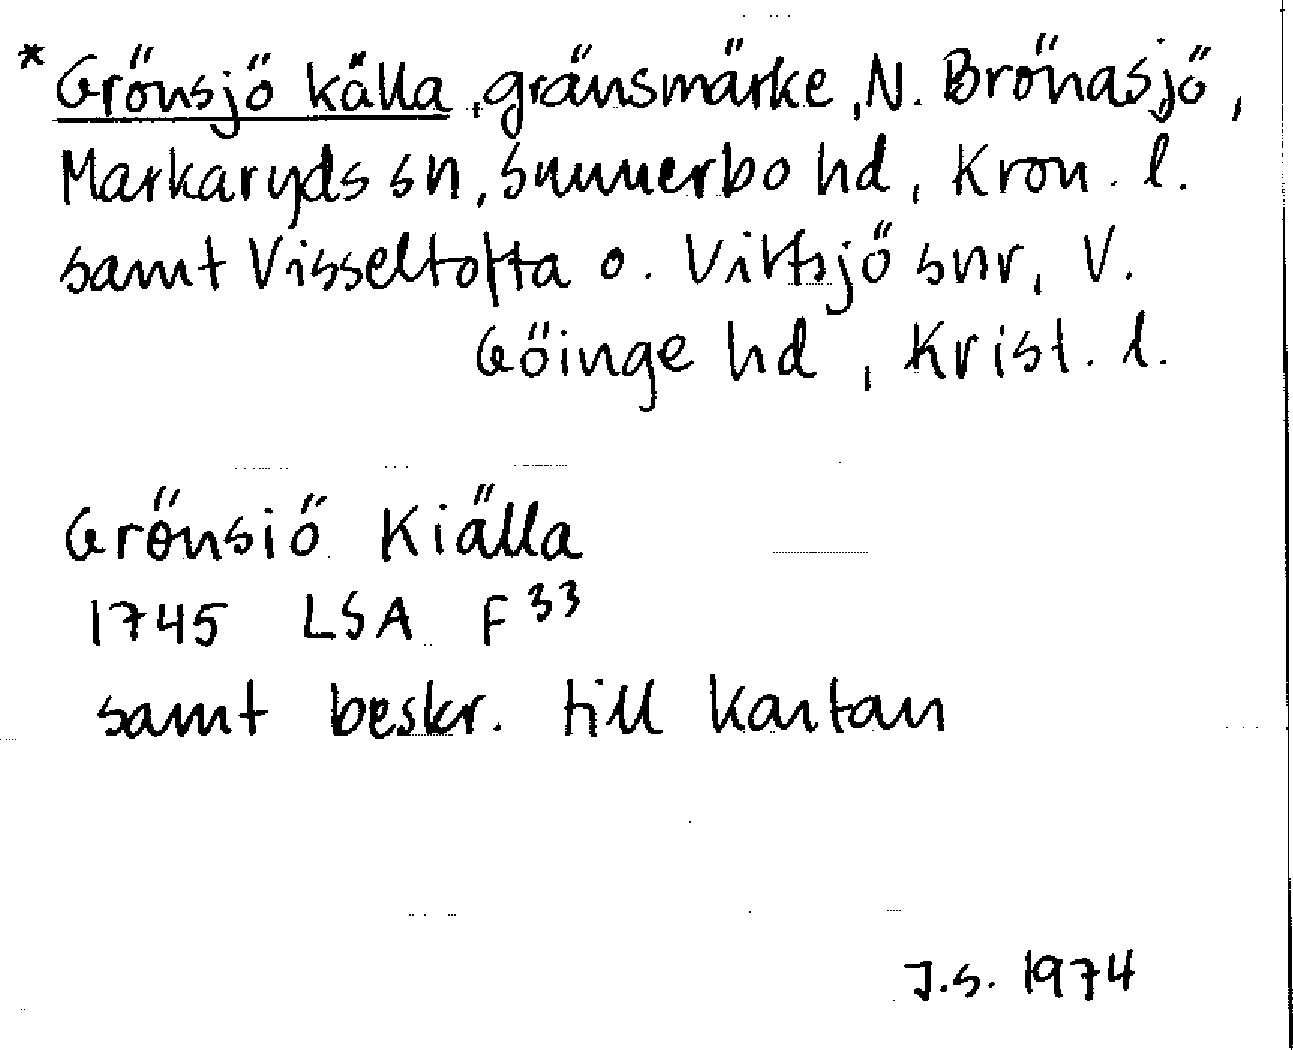 * Grönsjö källa, gränsmärke, N. Brönasjö,
Markaryds sn, Sunnerbo hd, Kron. l.
samt Visseltofta o. Vittsjö snr, V.
Göinge hd, Krist. l.
Grönsiö Kiälla
1745 LSA F 33
samt beskr. till kartan
J.S. 1974